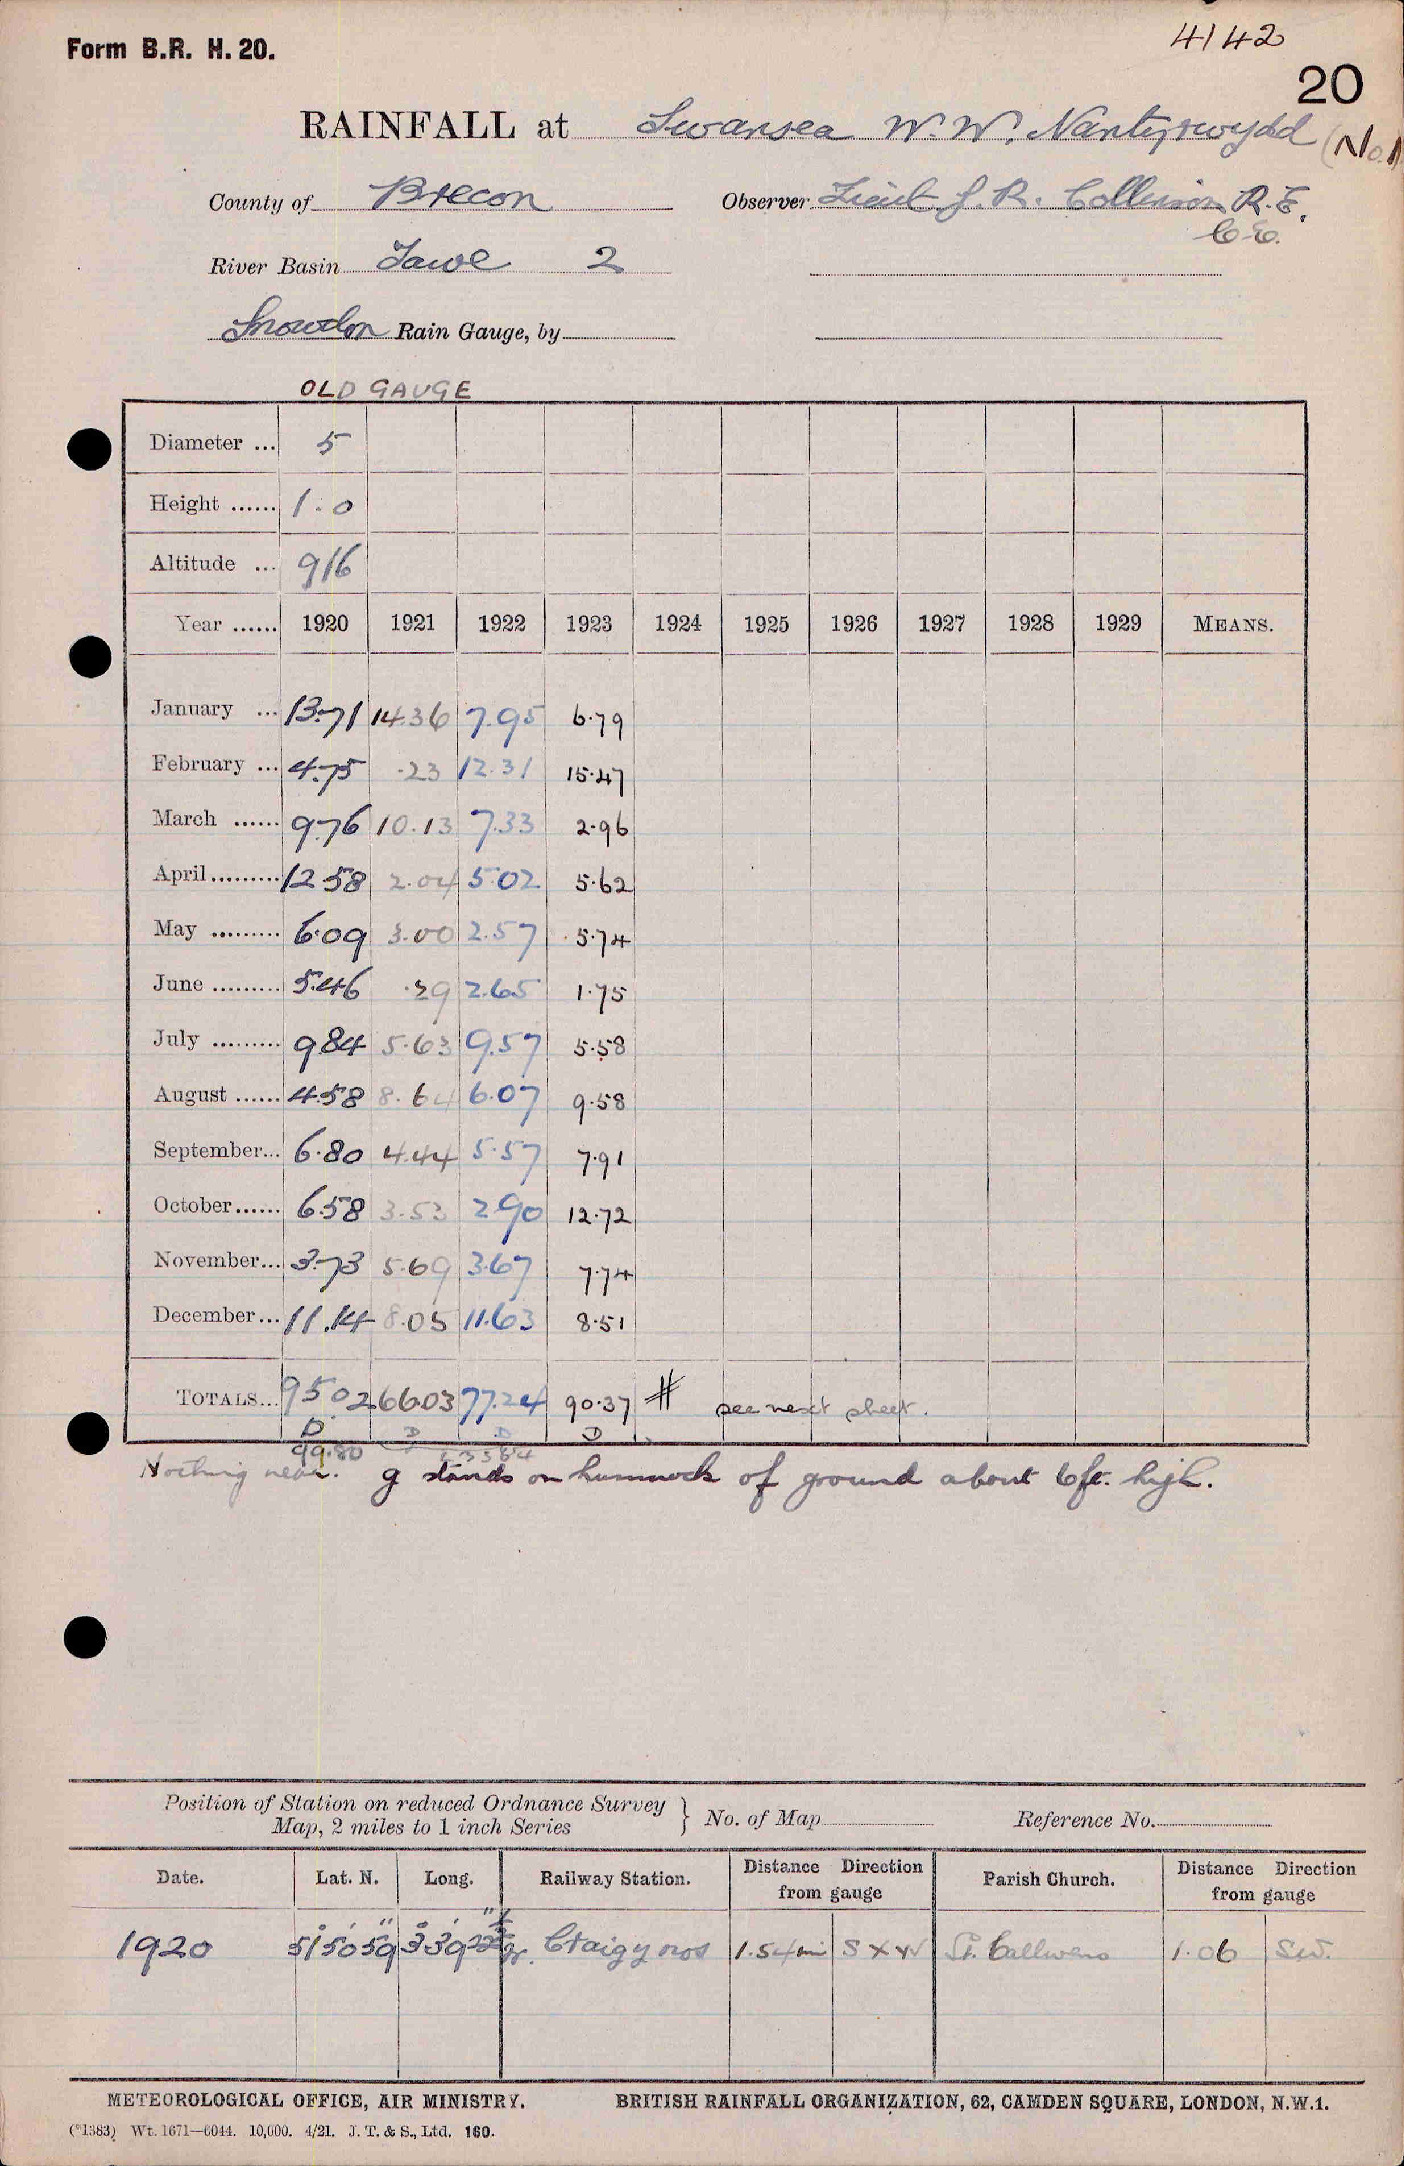 Form B.R. H. 20.
4142
20
RAINFALL at Swansea W.W. Nantyrwydd (No.1
County of Brecon Observer Lieut J. R. Collinson R.E.
C.E.
River Basin Tawe 2
Snowdon Rain Gauge, by
OLD GAUGE
Diameter ... 5
Height ...... 1.0
Altitude ... 916
Year ...... 1920 1921 1922 1923 1924 1925 1926 1927 1928 1929 MEANS.
January ... 13.71 14.36 7.95 6.79
February ... 4.75 .23 12.31 15.47
March ...... 9.76 10.13 7.33 2.96
April ......... 12 58 2.04 5.02 5.62
May ......... 6.09 3.00 2.57 5.74
June ......... 5.46 .29 2.65 1.75
July ......... 984 5.63 9.57 5.58
August ...... 4.58 8.64 6.07 9.58
September... 6.80 4.44 5.57 7.91
October...... 6.58 3.53 2.90 12.72
November... 3.73 5.69 3.67 7.74
December... 11.14 8.05 11.63 8.51
TOTALS... 95 02 66.03 77.24 90.37 # see next sheet.
D D D D
99.80
Nothing near. g stands on hummock of ground about 6ft. high.
Position of Station on reduced Ordnance Survey
Map, 2 miles to 1 inch Series } No. of Map Reference No.
Date. Lat. N. Long. Railway Station. Distance Direction Parish Church. Distance Direction
from gauge from gauge
1920 51° 50' 59" 3° 39' Craigynos 1.54 mi S x W St. Callwens 1.06 SW.
METEOROLOGICAL OFFICE, AIR MINISTRY. BRITISH RAINFALL ORGANIZATION, 62, CAMDEN SQUARE, LONDON, N.W.1.
(*1383) Wt. 1671—6044. 10,000. 4/21. J. T. & S., Ltd. 160.